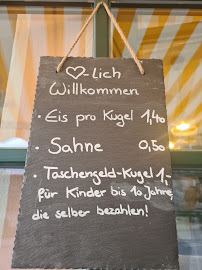 ♡-lich
Willkommen
· Eis pro Kugel 1,40
· Sahne 0,50
· Taschengeld-Kugel 1,-
für Kinder bis 10 Jahre,
die selber bezahlen!